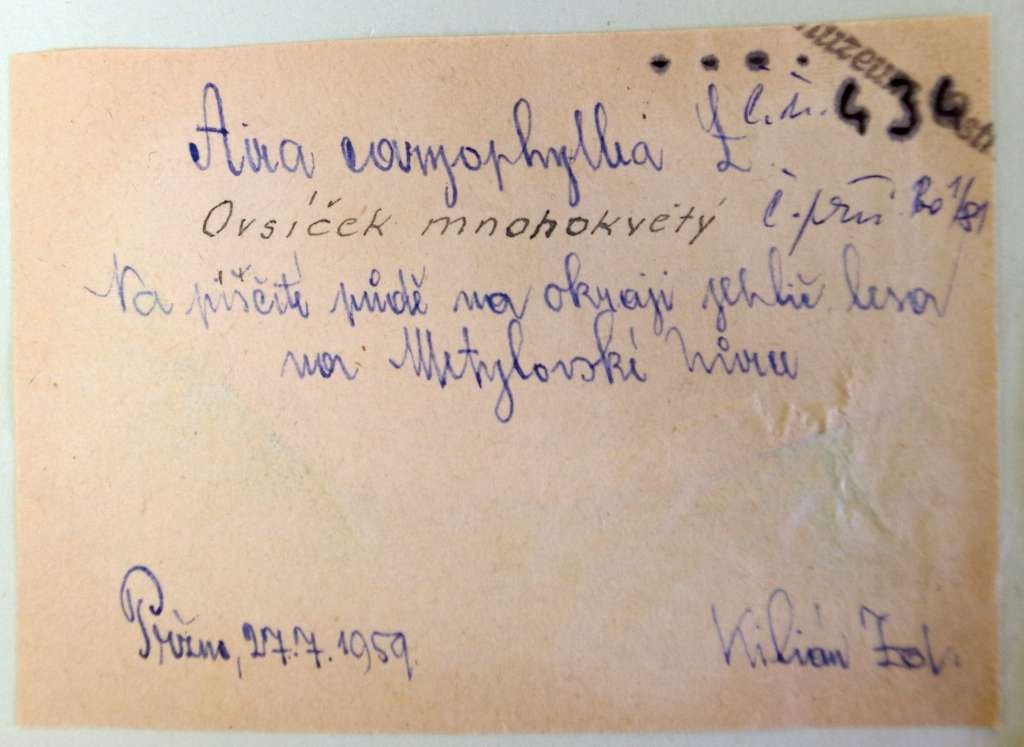 Aira caryophyllea L.
č.i. 434
Ovsíček mnohokvětý
č. přír. 20 1/81
Na písčité půdě na okraji jehlič. lesa
na Metylovské hůrce
Pržno, 27.7.1959.
Kilián Zd.